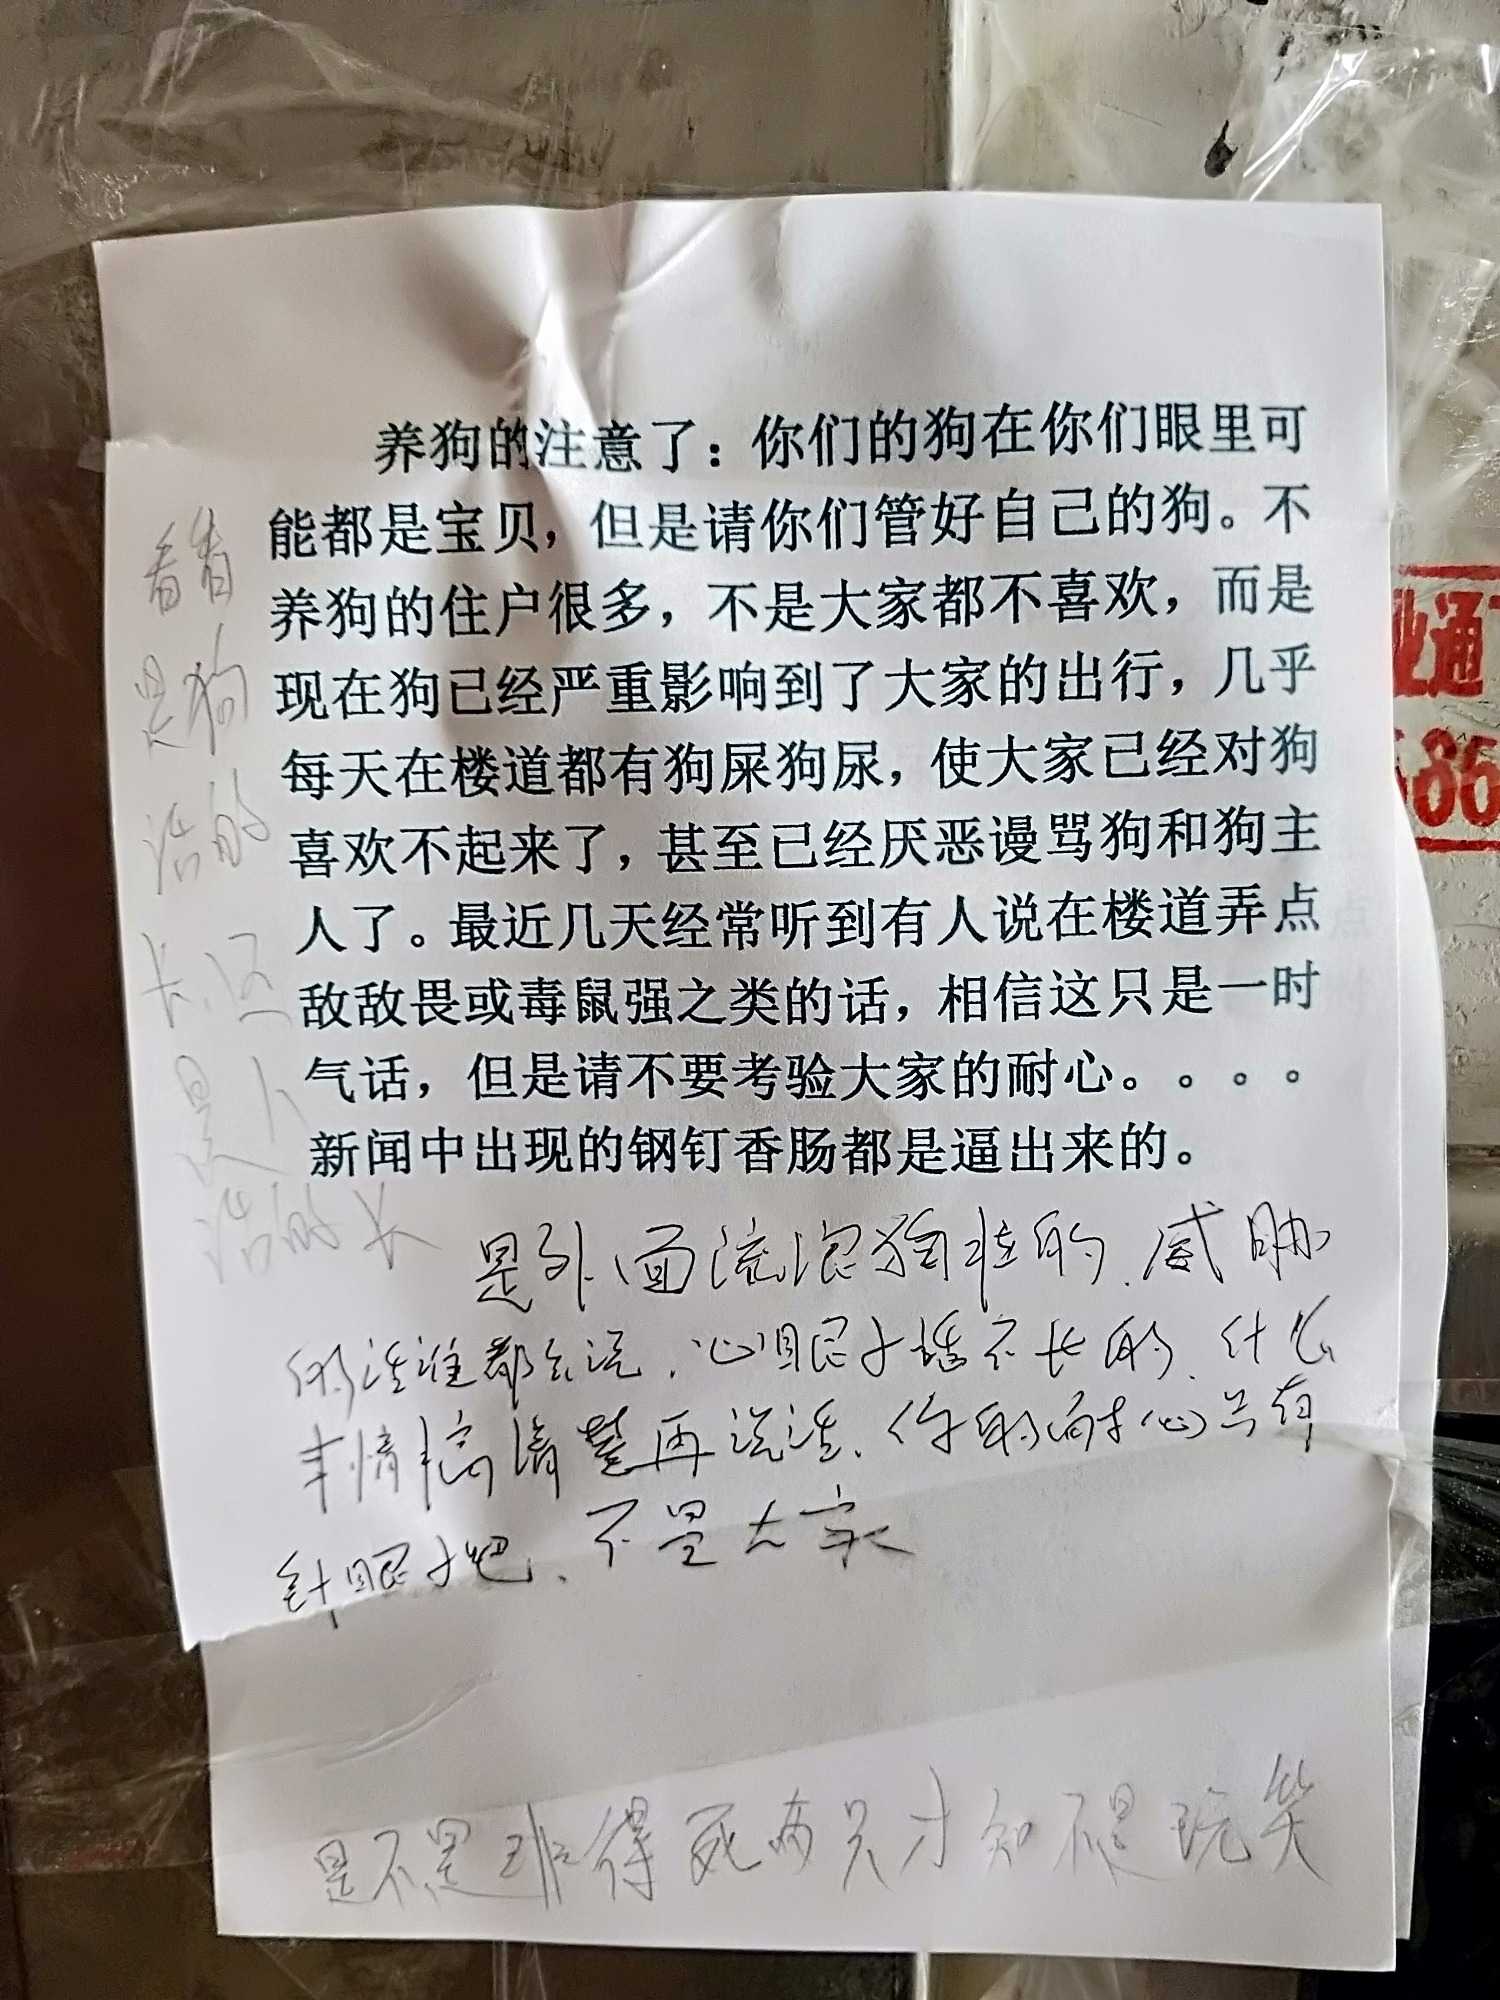 养狗的注意了：你们的狗在你们眼里可
能都是宝贝，但是请你们管好自己的狗。不
养狗的住户很多，不是大家都不喜欢，而是
现在狗已经严重影响到了大家的出行，几乎
每天在楼道都有狗屎狗尿，使大家已经对狗
喜欢不起来了，甚至已经厌恶谩骂狗和狗主
人了。最近几天经常听到有人说在楼道弄点
敌敌畏或毒鼠强之类的话，相信这只是一时
气话，但是请不要考验大家的耐心。。。。
新闻中出现的钢钉香肠都是逼出来的。
看看
是狗
活的
长、还
是人
活的长
是外面流浪狗拉的、威胁
的话谁都会说、心眼子活不长的、什么
事情搞清楚再说话、你的耐心只有
针眼子吧、不是大家
是不是非得死两只才知不是玩笑
业通
586